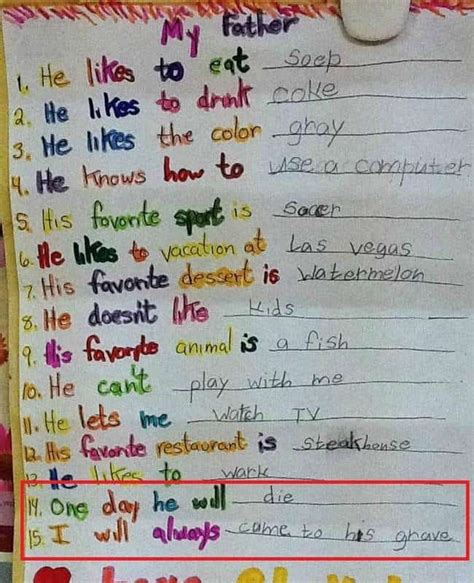 My Father
1. He likes to eat soep
2. He likes to drink coke
3. He likes the color gray
4. He knows how to use a computer
5. His favorite sport is Socer
6. He likes to vacation at Las vegas
7. His favorite dessert is watermelon
8. He doesn't like kids
9. His favorite animal is a fish
10. He can't play with me
11. He lets me watch TV
12. His favorite restaurant is steakhouse
13. He likes to wark
14. One day he will die
15. I will always come to his grave